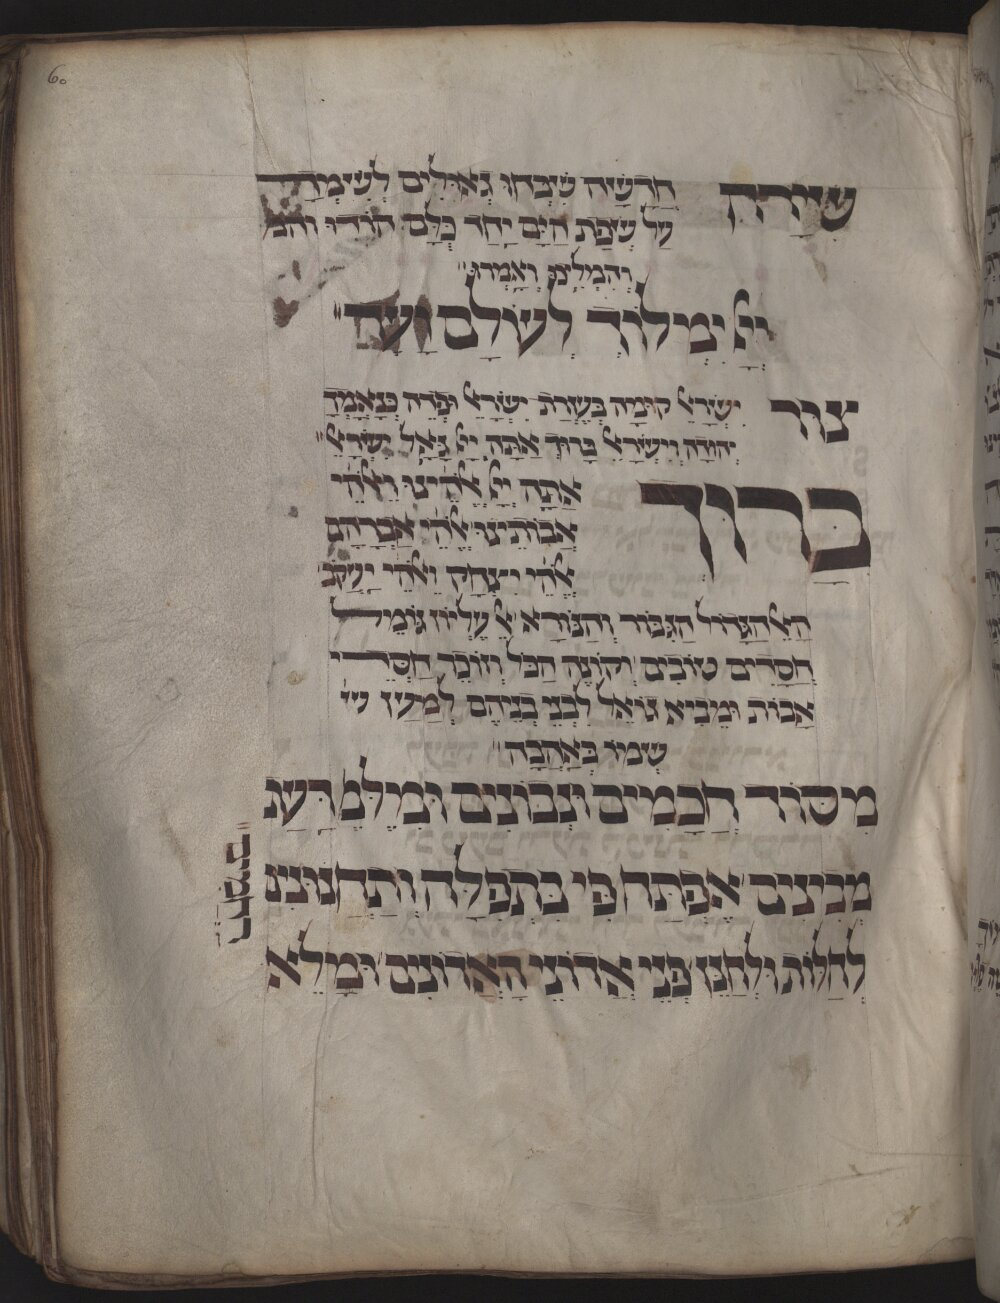 60
שִׁירָה חֲדָשָׁה שִׁבְּחוּ גְאוּלִים לְשִׁמְךָ
עַל שְׂפַת הַיָּם יַחַד כֻּלָּם הוֹדוּ והמ
וְהִמְלִיכוּ וְאָמְרוּ
יְיָ יִמְלוֹךְ לְעוֹלָם וָעֶד
צוּר יִשְׂרָאֵל קוּמָה בְּעֶזְרַת יִשְׂרָאֵל וּפְדֵה כִנְאֻמֶךָ
יְהוּדָה וְיִשְׂרָאֵל בָּרוּךְ אַתָּה יְיָ גָּאַל יִשְׂרָאֵל
בָּרוּךְ אַתָּה יְיָ אֱלֹהֵינוּ וֵאלֹהֵי
אֲבוֹתֵינוּ אֱלֹהֵי אַבְרָהָם
אֱלֹהֵי יִצְחָק וֵאלֹהֵי יַעֲקֹב
הָאֵל הַגָּדוֹל הַגִּבּוֹר וְהַנּוֹרָא אֵל עֶלְיוֹן גּוֹמֵל
חֲסָדִים טוֹבִים וְקוֹנֵה הַכֹּל וְזוֹכֵר חַסְדֵי
אָבוֹת וּמֵבִיא גוֹאֵל לִבְנֵי בְנֵיהֶם לְמַעַן ש
שְׁמוֹ בְּאַהֲבָה
מִסּוֹד חֲכָמִים וּנְבוֹנִים וּמִלֶּמֶד דַּעַת
מְבִינִים אֶפְתְּחָה פִּי בִּתְפִלָּה וּתְחִנּוּנִים
לְחַלּוֹת וּלְחַנֵּן פְּנֵי אֲדוֹנֵי הָאֲדוֹנִים וּמָלֵא
רַחֲמִים